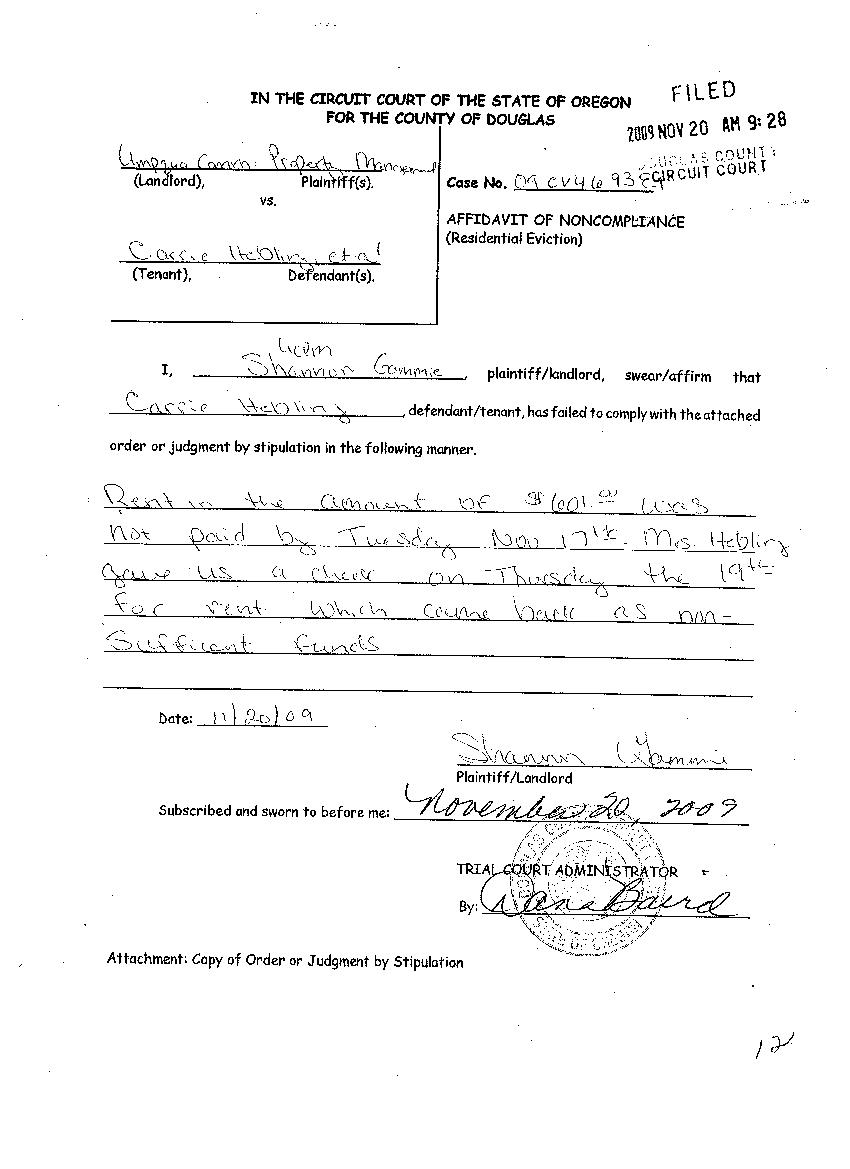 IN THE CIRCUIT COURT OF THE STATE OF OREGON
FOR THE COUNTY OF DOUGLAS
FILED
2009 NOV 20 AM 9:28
DOUGLAS COUNTY
CIRCUIT COURT
Umpqua Property Management
(Landlord), Plaintiff(s).
vs.
Case No. 09 CV46 93
AFFIDAVIT OF NONCOMPLIANCE
(Residential Eviction)
Carrie Hebling, et al
(Tenant), Defendant(s).
I, Shannon Gammie, plaintiff/landlord, swear/affirm that
Carrie Hebling, defendant/tenant, has failed to comply with the attached
order or judgment by stipulation in the following manner.
Rent in the amount of $601.00 was
not paid by Tuesday Nov 17th. Mrs. Hebling
gave us a check on Thursday the 19th
for rent which came back as non-
Sufficant funds
Date: 11/20/09
Shannon Gammie
Plaintiff/Landlord
Subscribed and sworn to before me: November 20, 2009
TRIAL COURT ADMINISTRATOR
By: Dana Baird
STATE OF OREGON
Attachment: Copy of Order or Judgment by Stipulation
12